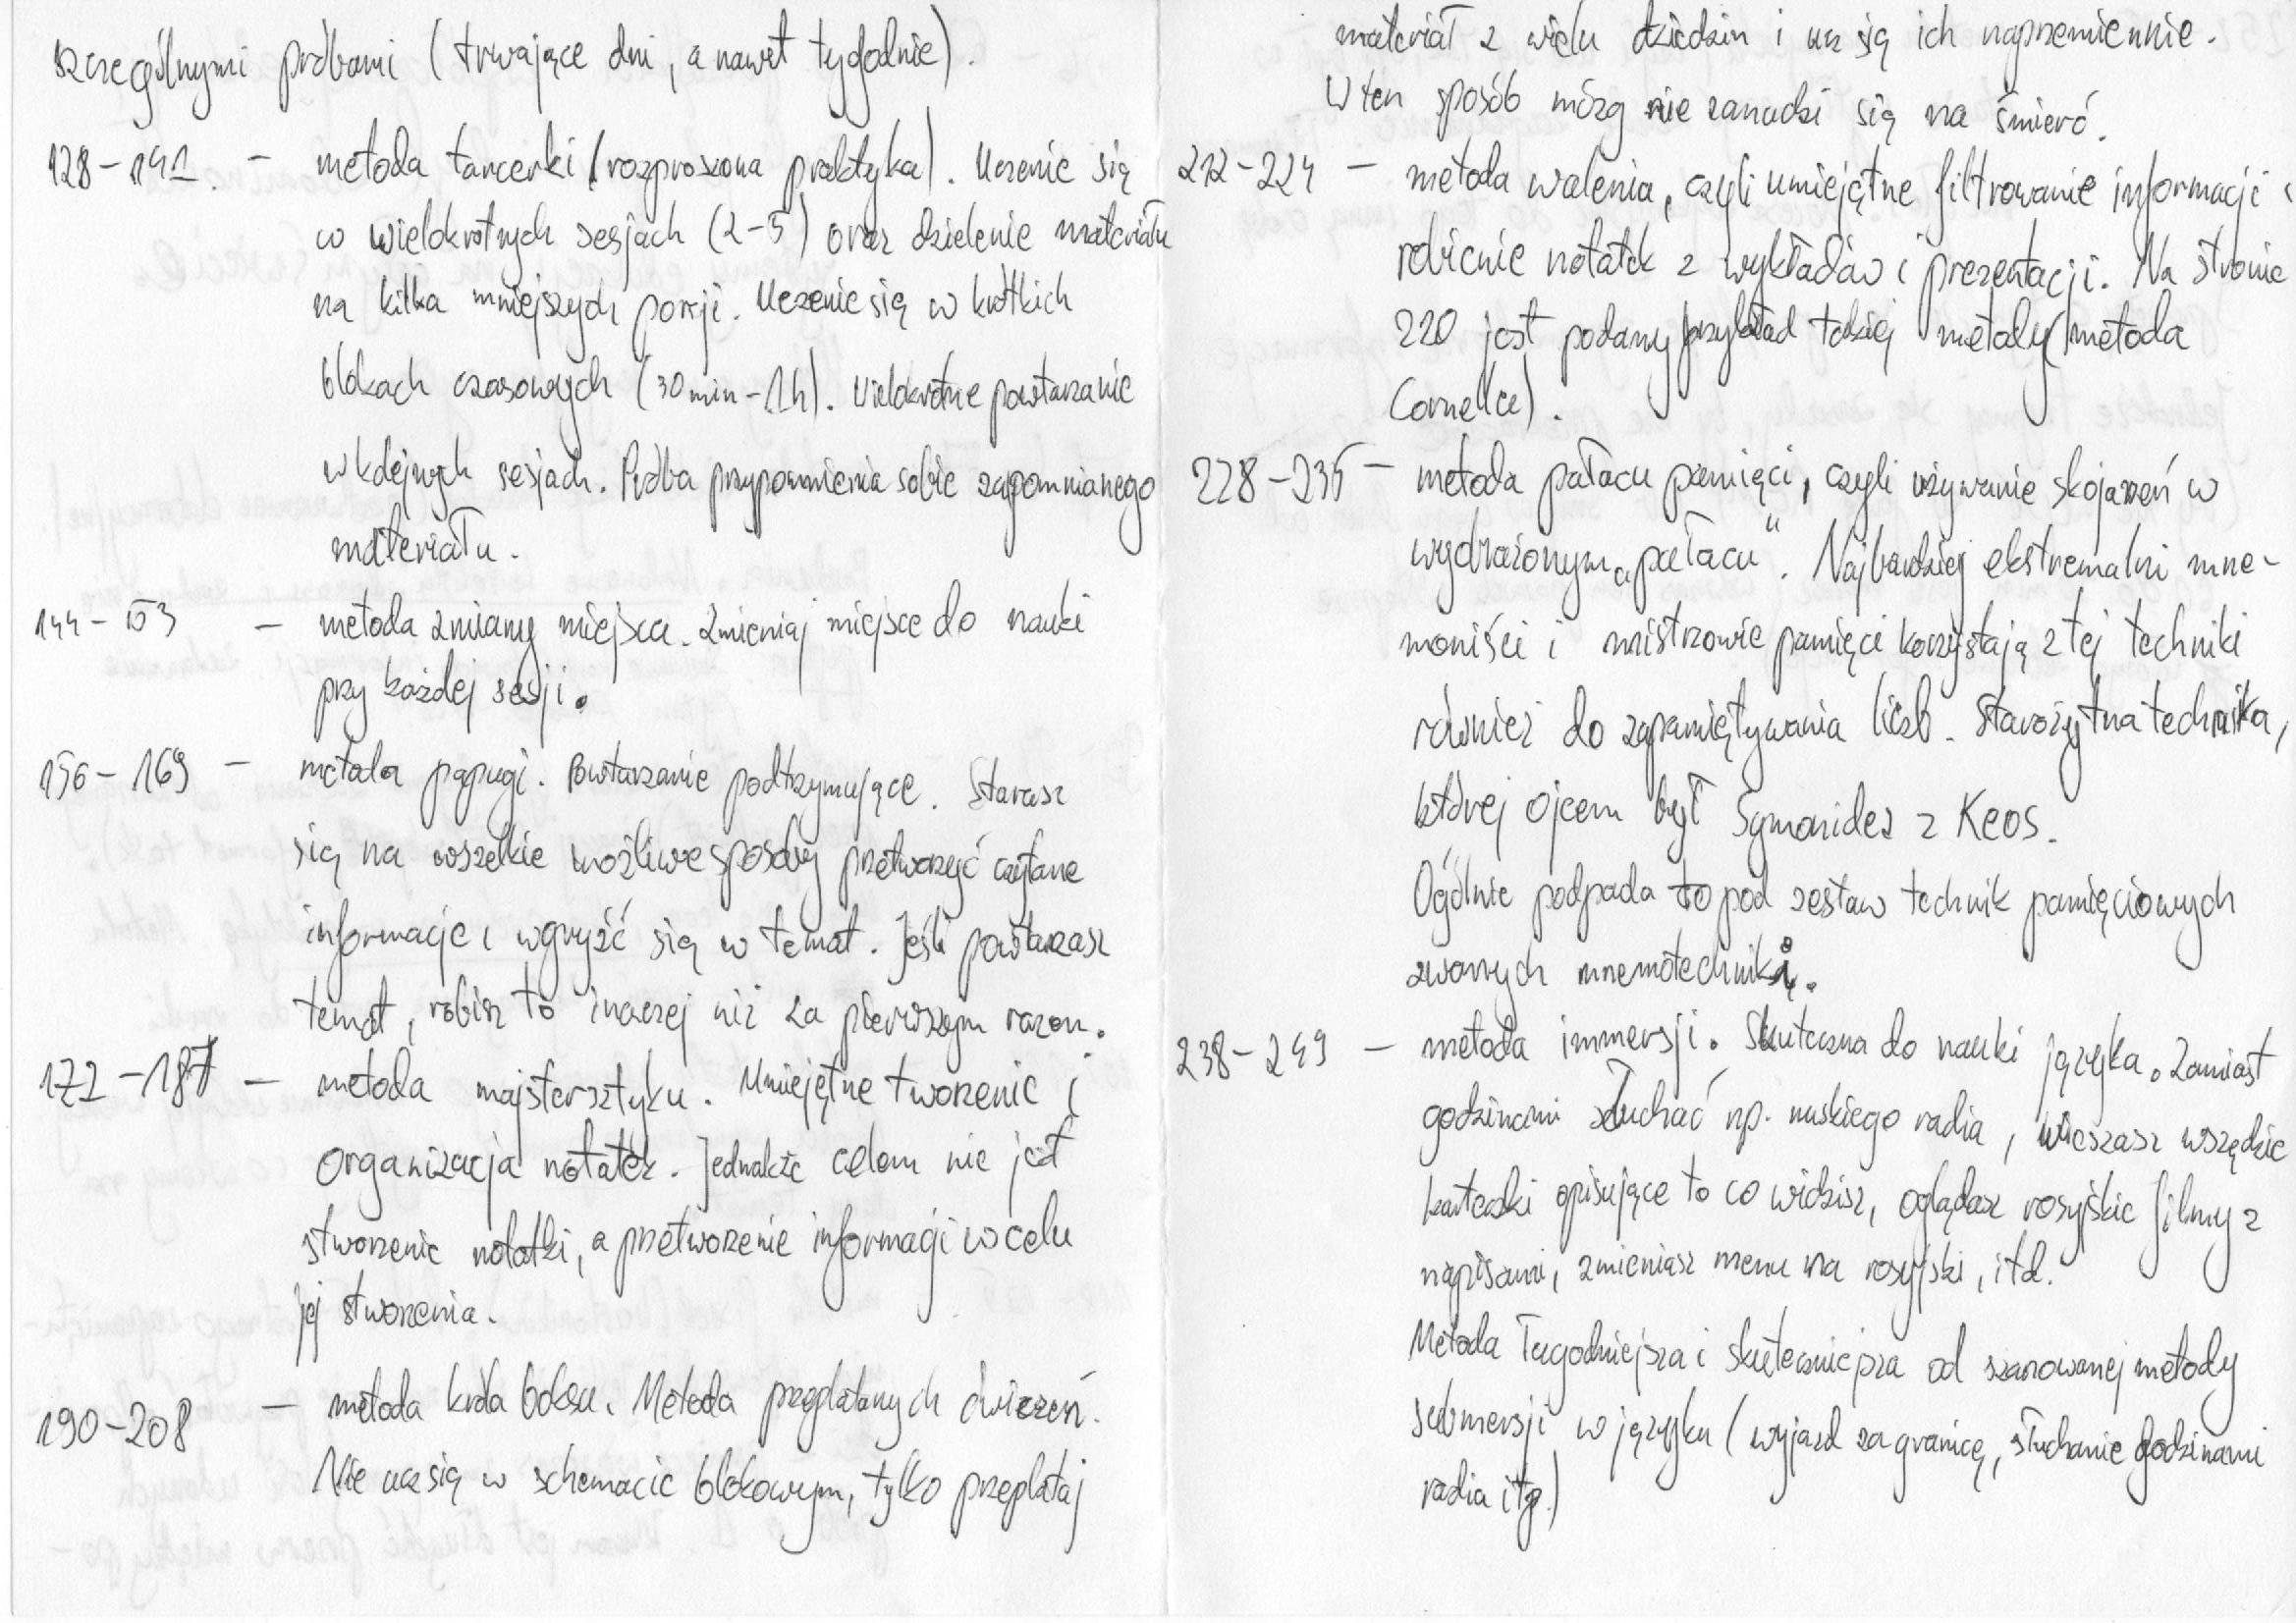 szczególnymi próbami (trwające dni, a nawet tygodnie).
128-141 - metoda tancerki (rozproszona praktyka). Uczenie się
w wielokrotnych sesjach (2-5) oraz dzielenie materiału
na kilka mniejszych porcji. Uczenie się w krótkich
blokach czasowych (30min-1h). Wielokrotne powtarzanie
w kolejnych sesjach. Próba przypomnienia sobie zapomnianego
materiału.
144-153 - metoda zmiany miejsca. Zmieniaj miejsce do nauki
przy każdej sesji.
156-169 - metoda papugi. Powtarzanie podtrzymujące. Starasz
się na wszelkie możliwe sposoby przetworzyć czytane
informacje i wgryźć się w temat. Jeśli powtarzasz
temat, robisz to inaczej niż za pierwszym razem.
172-187 - metoda majstersztyku. Umiejętne tworzenie i
organizacja notatek. Jednakże celem nie jest
stworzenie notatki, a przetworzenie informacji w celu
jej stworzenia.
190-208 - metoda króla boksu. Metoda przeplatanych ćwiczeń.
Nie ucz się w schemacie blokowym, tylko przeplataj
materiał z wielu dziedzin i ucz się ich naprzemiennie.
W ten sposób mózg nie zanudzi się na śmierć.
212-224 - metoda walenia, czyli umiejętne filtrowanie informacji i
robienie notatek z wykładów i prezentacji. Na stronie
220 jest podany przykład takiej metody (metoda
Cornella).
228-235 - metoda pałacu pamięci, czyli używanie skojarzeń w
wyobrażonym „pałacu". Najbardziej ekstremalni mne-
moniści i mistrzowie pamięci korzystają z tej techniki
również do zapamiętywania liczb. Starożytna technika,
której ojcem był Symonides z Keos.
Ogólnie podpada to pod zestaw technik pamięciowych
zwanych mnemotechniką.
238-249 - metoda immersji. Skuteczna do nauki języka. Zamiast
godzinami słuchać np. ruskiego radia, wieszasz wszędzie
karteczki opisujące to co widzisz, oglądasz rosyjskie filmy z
napisami, zmieniasz menu na rosyjski, itd.
Metoda łagodniejsza i skuteczniejsza od szanowanej metody
submersji w języku (wyjazd za granicę, słuchanie godzinami
radia itp.)